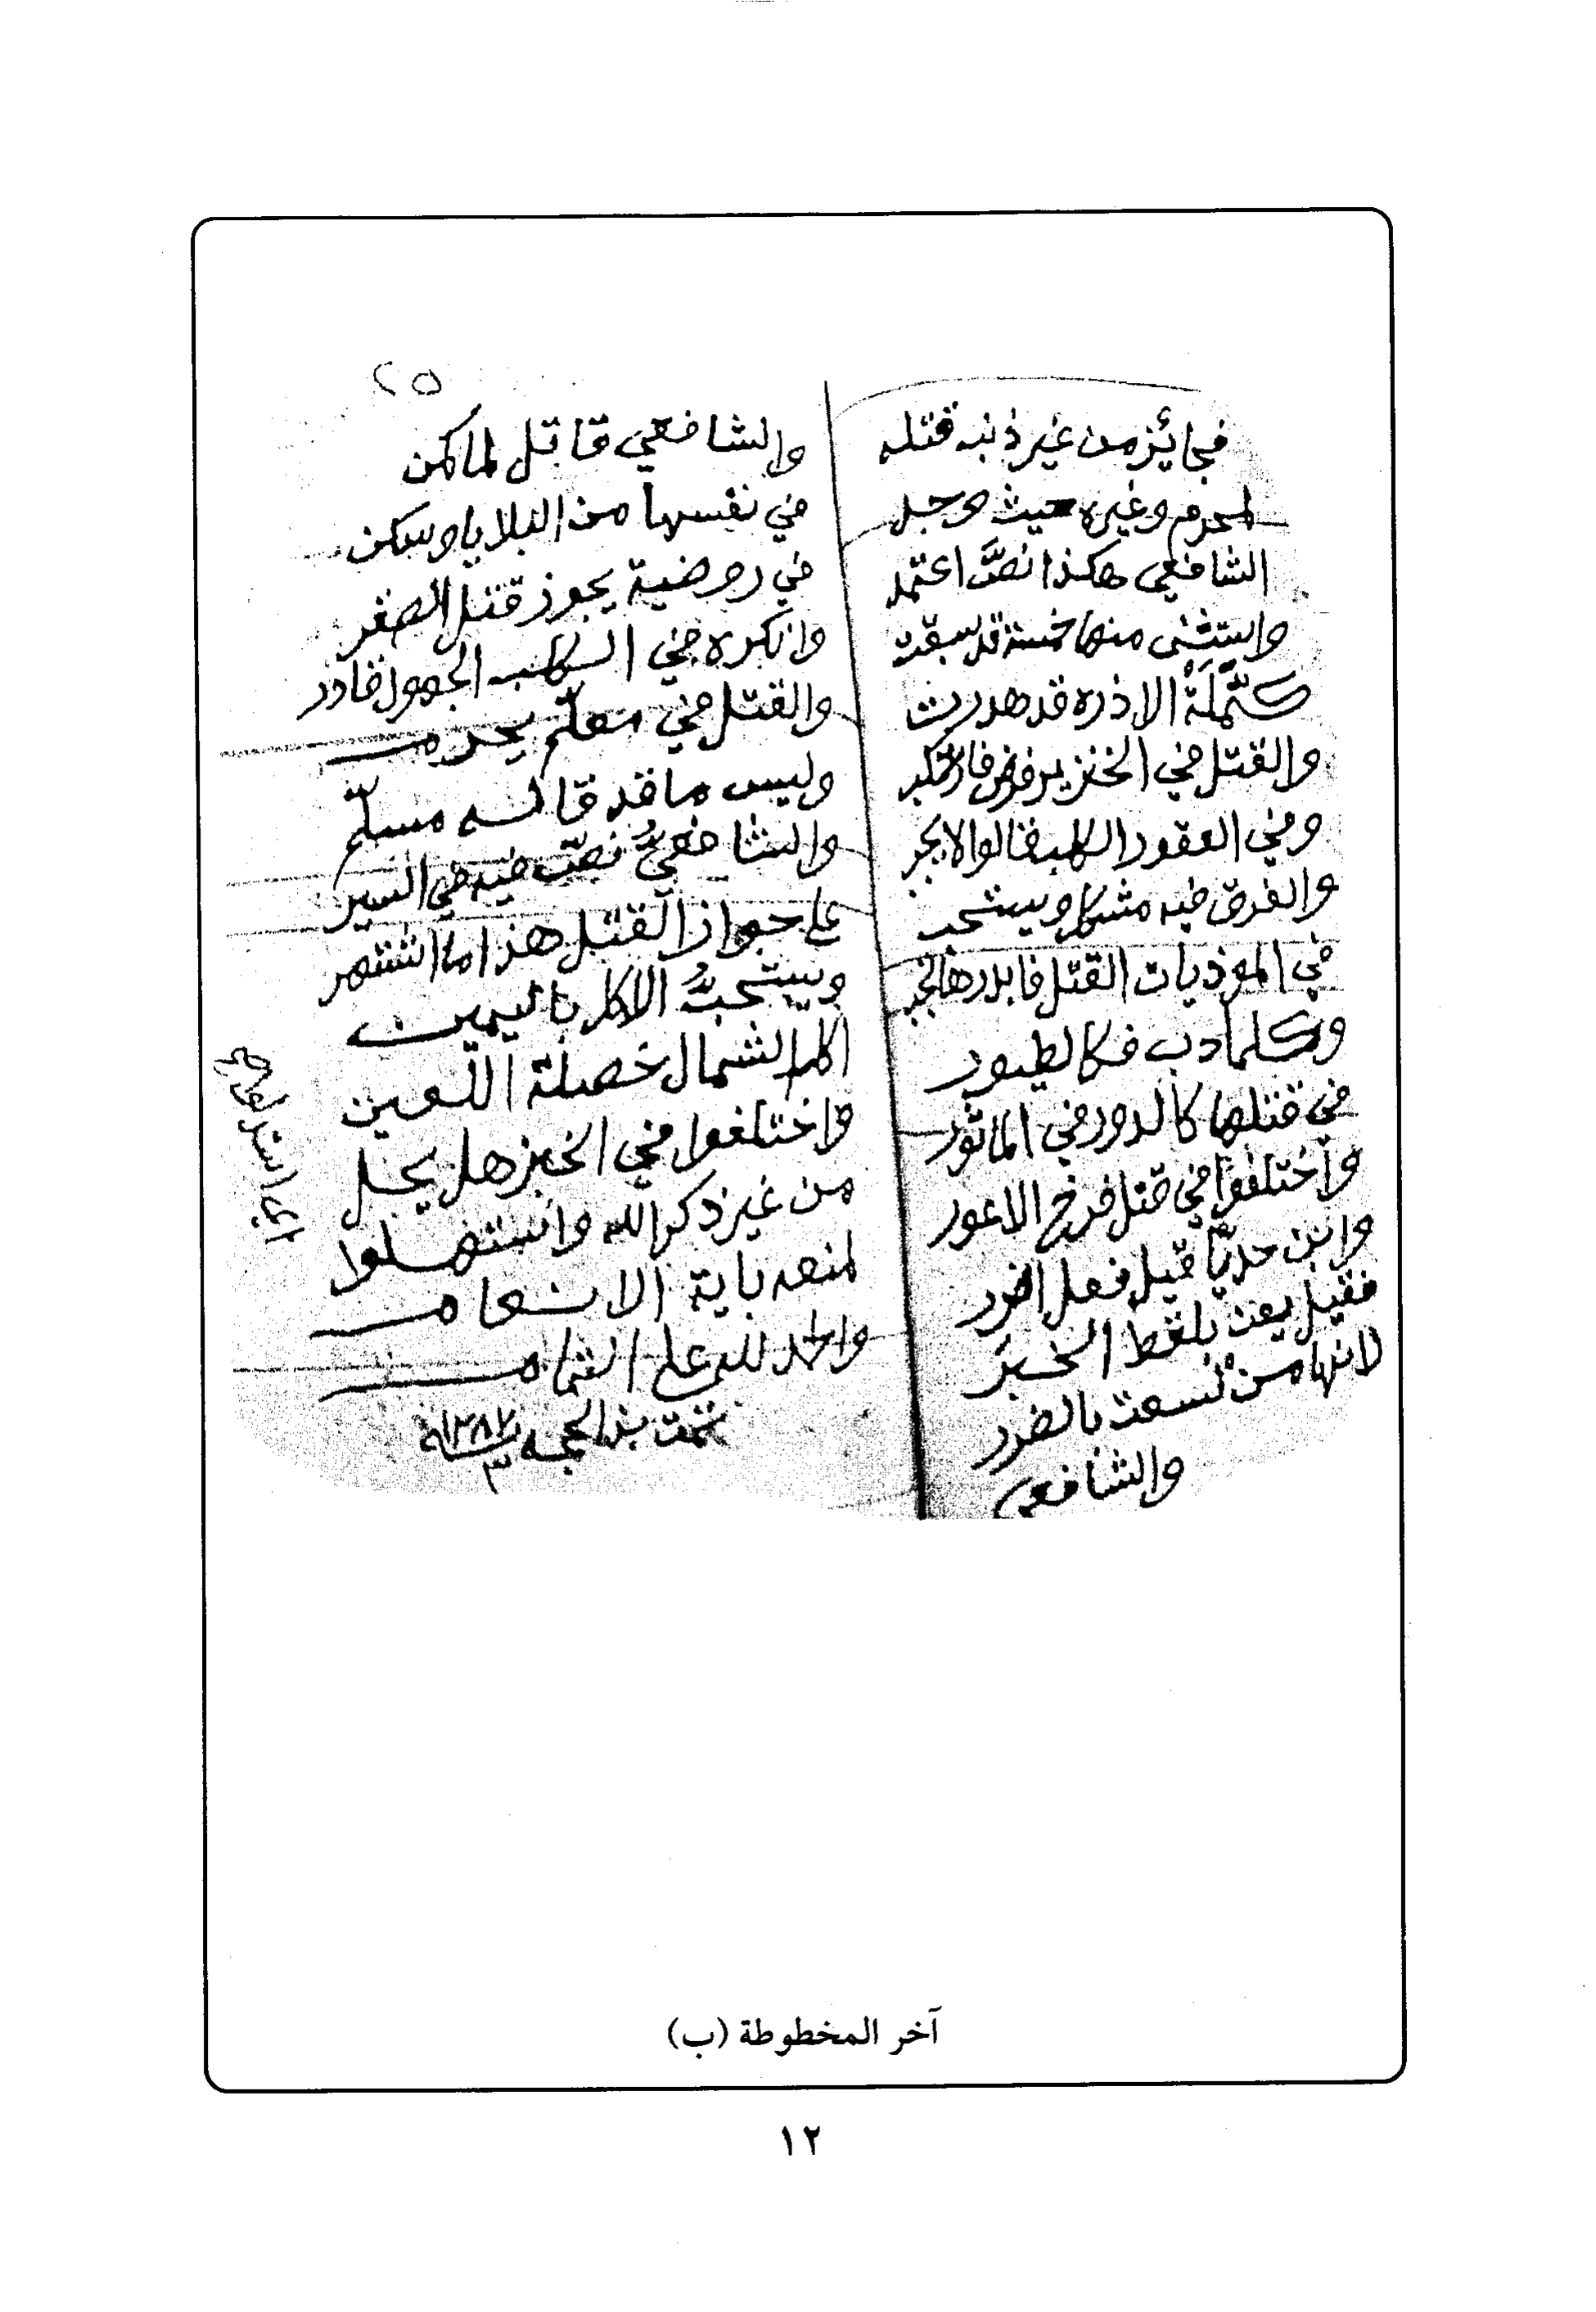 فجائز من غير ذنبه قتله
لمحرم وغيره حيث وجل
الشافعي هكذا نصَّ اعتمد
واستثنى منها خمسة قد سبقت
كنَمْلَةُ الاذره قد هدرت
والقتل في الخنزير فرض
وفي العقور الكلب قالوا لا يجز
والفرق فيه مشكل ويستحب
في الموذيات القتل فابدرها تجب
وكلما دب فكالطيور
في قتلها كالدود في الماثور
واختلفوا في قتل فرخ الاعور
وابن حديّا قيل فعل الضرر
فقيل يفت بلقط الخبر
لانها من تسعت بالضرر
والشافعي
٢٥
والشافعي قاتل لما كمن
في نفسها من البلايا وسكن
في روضية يجوز قتل الصقر
وانكره في الكلب الجهول فادر
والقتل في معلّم يحرم
وليس ما قد قاله مسلّم
والشافعيُّ نصّ فيه في السير
على جواز القتل هذا ما اشتهر
ويستحبُّ الاكل باليمين
اكل الشمال خصلة اللّعين
واختلفوا في الخبز هل يحل
من غير ذكر الله واستهلوا
لمنعه باية الانعام
والحمد لله على التمام
تمت بذ الحجه سنة ١٣٨٧
٣
آخر المخطوطة (ب)
١٢